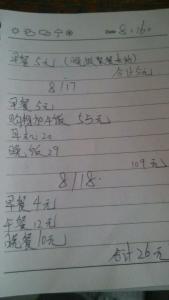 Date 8.16.
早餐5元(晚饭
合计5元
8/17
早餐5元
购物加午饭 55元
20
晚饭29
109元
8/18.
早餐4元
午餐12元
晚餐10元
合计26元